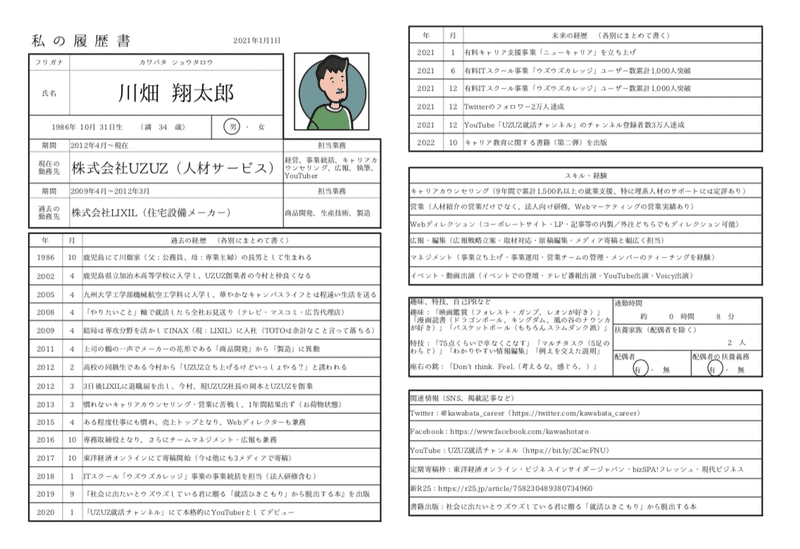 私の履歴書
2021年1月1日
フリガナ
カワバタ ショウタロウ
氏名
川畑 翔太郎
1986年 10月 31日生 （満 34 歳）
男 ・ 女
期間
2012年4月～現在
担当業務
現在の
勤務先
株式会社UZUZ（人材サービス）
経営、事業統括、キャリアカ
ウンセリング、広報、執筆、
YouTuber
期間
2009年4月～2012年3月
担当業務
過去の
勤務先
株式会社LIXIL（住宅設備メーカー）
商品開発、生産技術、製造
年 月 過去の経歴 （各別にまとめて書く）
1986 10 鹿児島にて川畑家（父：公務員、母：専業主婦）の長男として生まれる
2002 4 鹿児島県立加治木高等学校に入学し、UZUZ創業者の今村と仲良くなる
2005 4 九州大学工学部機械航空工学科に入学し、華やかなキャンパスライフとは程遠い生活を送る
2008 4 「やりたいこと」軸で就活したら全社お見送り（テレビ・マスコミ・広告代理店）
2009 4 結局は専攻分野を活かしてINAX（現：LIXIL）に入社（TOTOは余計なこと言って落ちる）
2011 4 上司の鶴の一声でメーカーの花形である「商品開発」から「製造」に異動
2012 2 高校の同級生である今村から「UZUZ立ち上げるけどいっしょやる？」と誘われる
2012 3 3日後LIXILに退職届を出し、今村、現UZUZ社長の岡本とUZUZを創業
2013 3 慣れないキャリアカウンセリング・営業に苦戦し、1年間結果出ず（お荷物状態）
2015 4 ある程度仕事にも慣れ、売上トップとなり、Webディレクターも兼務
2016 10 専務取締役となり、さらにチームマネジメント・広報も兼務
2017 10 東洋経済オンラインにて寄稿開始（今は他にも3メディアで寄稿）
2018 1 ITスクール「ウズウズカレッジ」事業の事業統括を担当（法人研修含む）
2019 9 『社会に出たいとウズウズしている君に贈る「就活ひきこもり」から脱出する本』を出版
2020 1 「UZUZ就活チャンネル」にて本格的にYouTuberとしてデビュー
年 月 未来の経歴 （各別にまとめて書く）
2021 1 有料キャリア支援事業「ニューキャリア」を立ち上げ
2021 6 有料ITスクール事業「ウズウズカレッジ」ユーザー数累計1,000人突破
2021 12 有料ITスクール事業「ウズウズカレッジ」ユーザー数累計1,000人突破
2021 12 Twitterのフォロワー2万人達成
2021 12 YouTube「UZUZ就活チャンネル」のチャンネル登録者数3万人達成
2022 10 キャリア教育に関する書籍（第二弾）を出版
スキル・経験
キャリアカウンセリング（9年間で累計1,500名以上の就業支援、特に理系人材のサポートには定評あり）
営業（人材紹介の営業だけでなく、法人向け研修、Webマーケティングの営業実績あり）
Webディレクション（コーポレートサイト・LP・記事等の内製／外注どちらでもディレクション可能）
広報・編集（広報戦略立案・取材対応・原稿編集・メディア寄稿と幅広く担当）
マネジメント（事業立ち上げ・事業運用・営業チームの管理・メンバーのティーチングを経験）
イベント・動画出演（イベントでの登壇・テレビ番組出演・YouTube出演・Voicy出演）
趣味、特技、自己PRなど
趣味：「映画鑑賞（フォレスト・ガンプ、レオンが好き）」
「漫画読書（ドラゴンボール、キングダム、風の谷のナウシカ
が好き）」「バスケットボール（もちろんスラムダンク派）」
特技：「75点くらいで卒なくこなす」「マルチタスク（5足の
わらじ）」「わかりやすい情報編集」「例えを交えた説明」
座右の銘：「Don't think. Feel.（考えるな、感じろ。）」
通勤時間
約 0 時間 8 分
扶養家族（配偶者を除く）
2 人
配偶者
有 ・ 無
配偶者の扶養義務
有 ・ 無
関連情報（SNS、掲載記事など）
Twitter：@kawabata_career（https://twitter.com/kawabata_career）
Facebook：https://www.facebook.com/kawashotaro
YouTube：UZUZ就活チャンネル（https://bit.ly/2CacFNU）
定期寄稿枠：東洋経済オンライン・ビジネスインサイダージャパン・bizSPA!フレッシュ・現代ビジネス
新R25：https://r25.jp/article/758230489380734960
書籍出版：社会に出たいとウズウズしている君に贈る「就活ひきこもり」から脱出する本